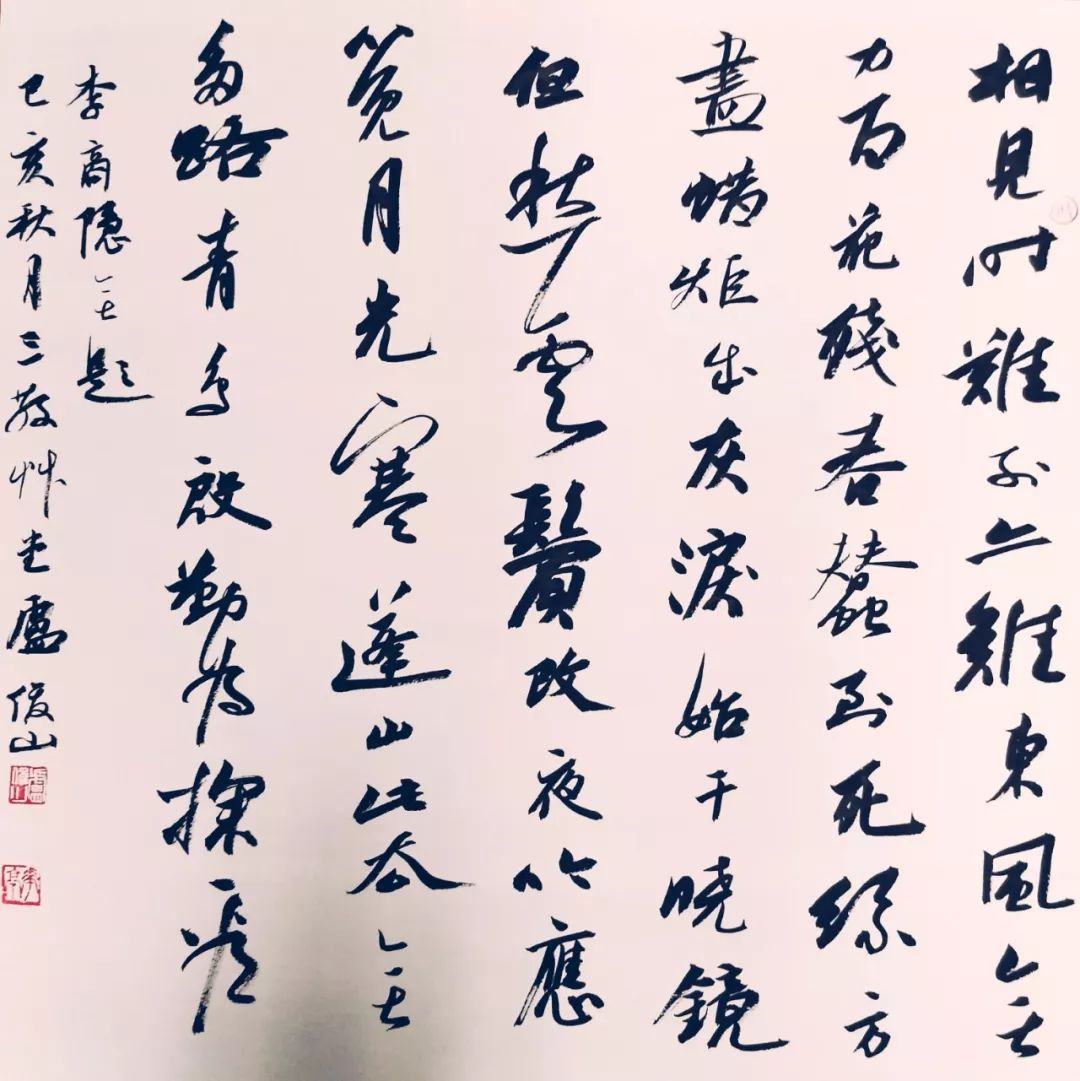 相見时難别亦難東風无
力百花殘春蠶到死絲方
盡蠟炬成灰淚始干曉鏡
但愁雲鬢改夜吟應
覺月光寒蓬山此去无
多路青鳥殷勤为探看
李商隐无题
己亥秋月三艸堂盧俊山